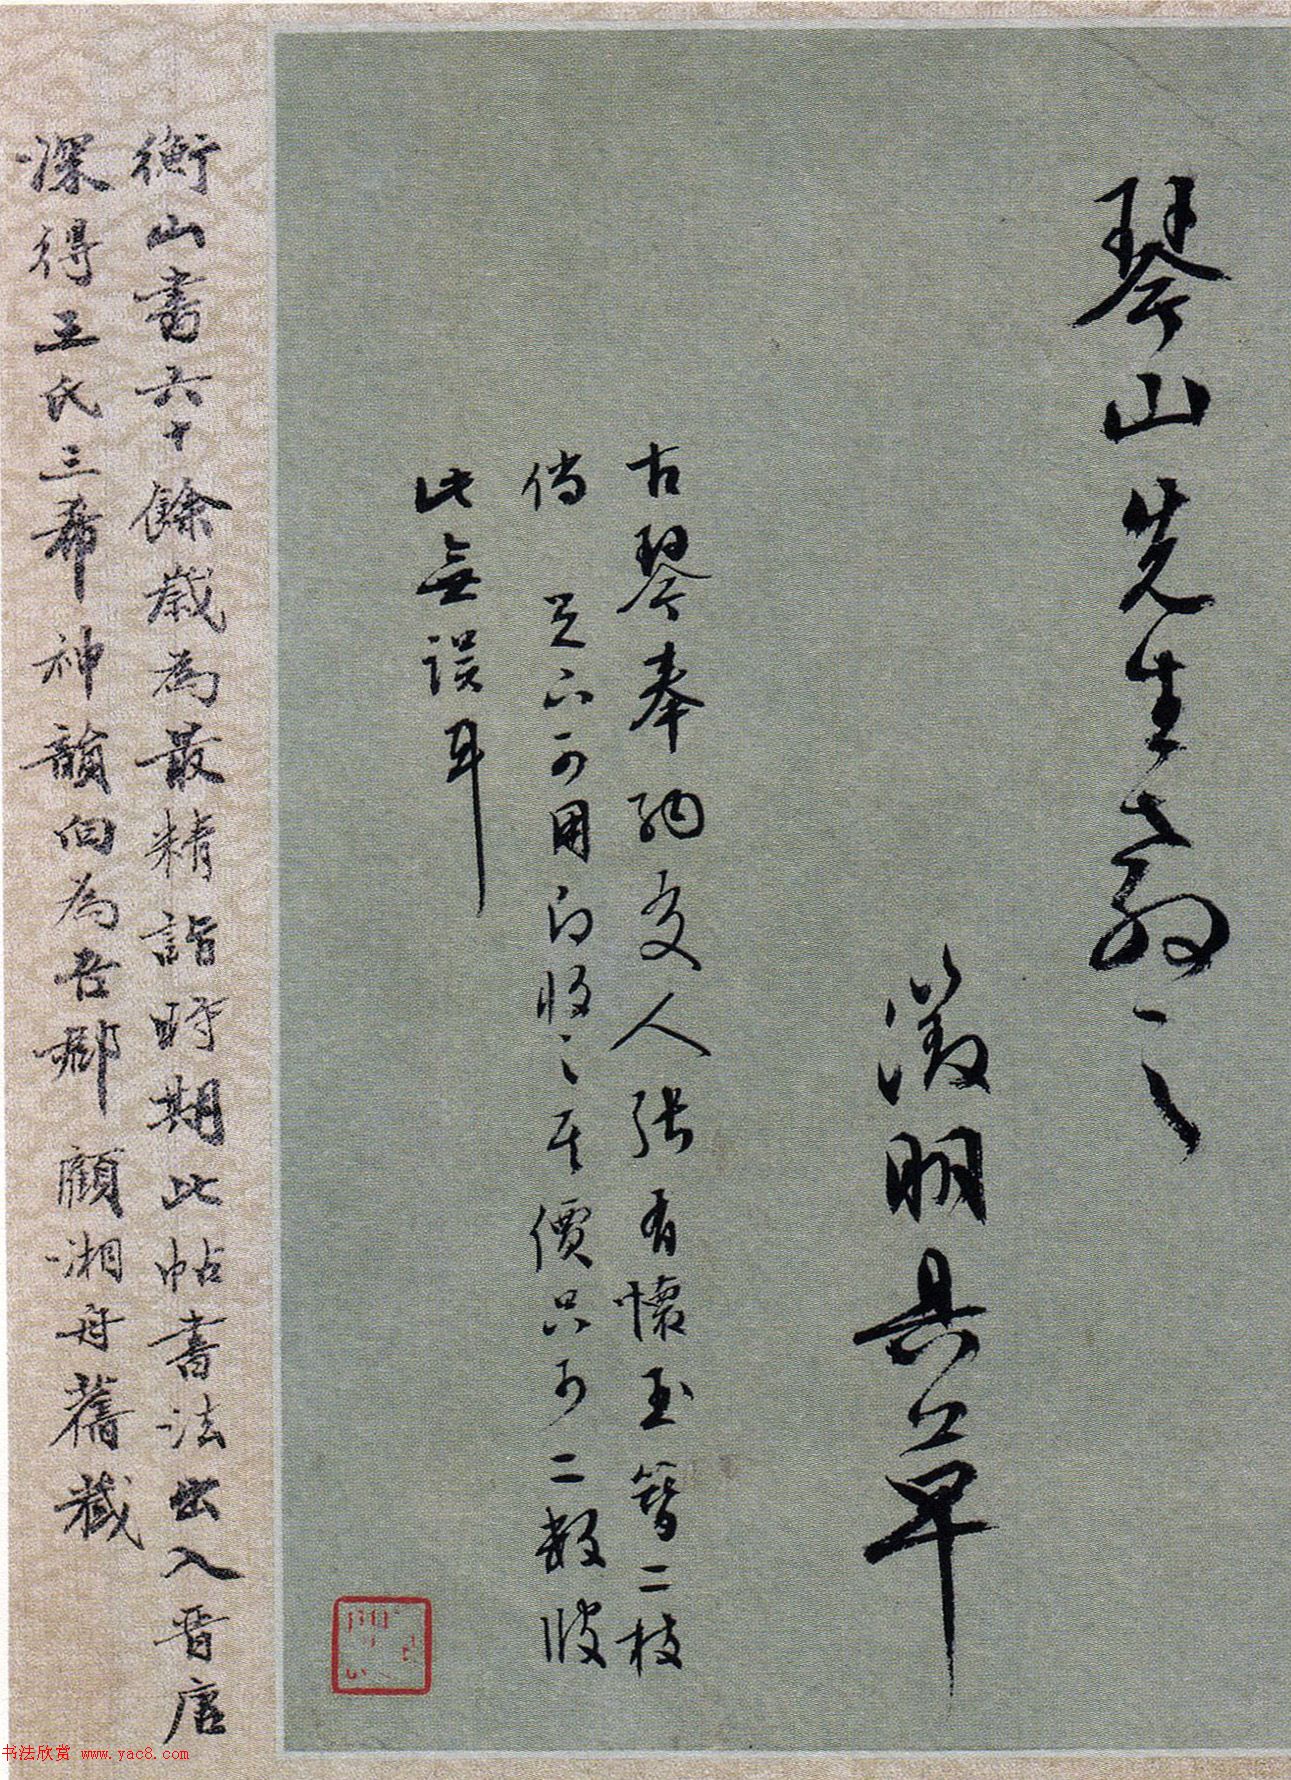 琴山先生壽
徵明具草
古琴奉納友人張有懷玉簪二枝
倘 足下可用即收之其價只可二數
此無誤耳
衡山書六十餘歲為最精詣時期此帖書法出入晉唐
深得王氏三希神韻向為吾鄉顧湘舟舊藏
书法欣赏 www.yac8.com